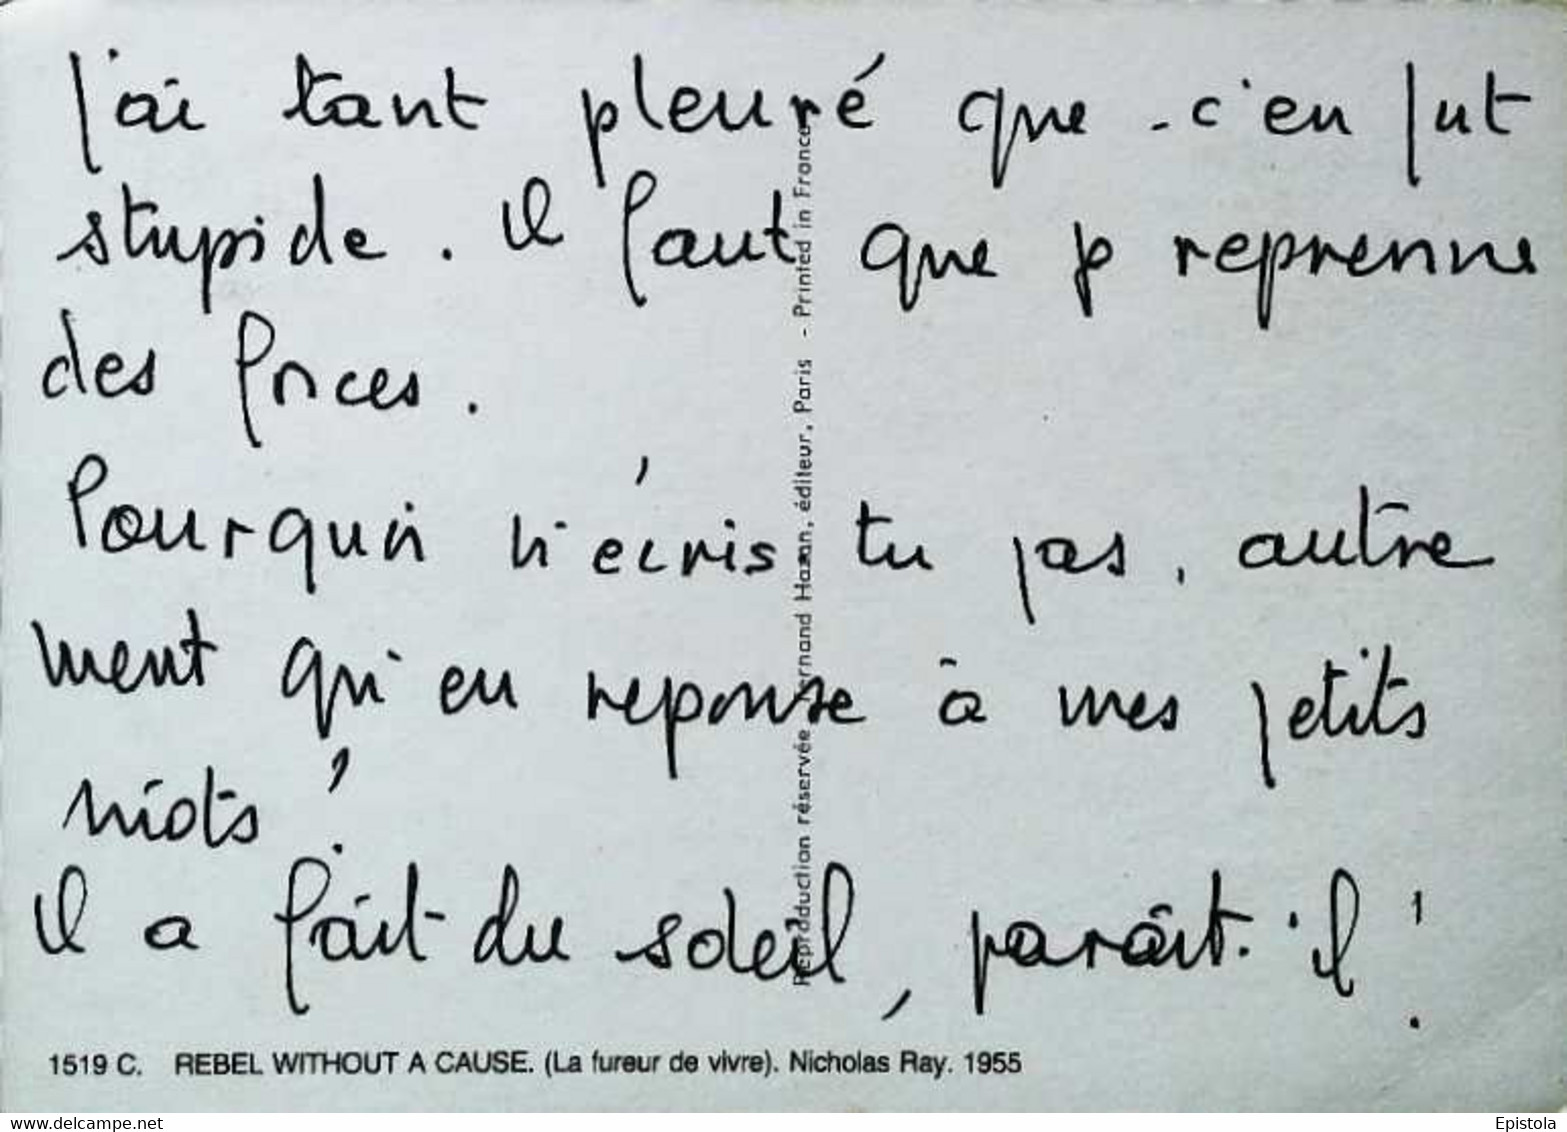 J'ai tant pleuré que c'en fut
stupide. Il faut que je reprenne
des forces.
Pourquoi n'écris-tu pas, autre
ment qu'en reponse à mes petits
mots ?
Il a fait du soleil, paraît-il !
Reproduction réservée Fernand Hazan, éditeur, Paris - Printed in France
1519 C. REBEL WITHOUT A CAUSE. (La fureur de vivre). Nicholas Ray. 1955
www.delcampe.net
Epistola